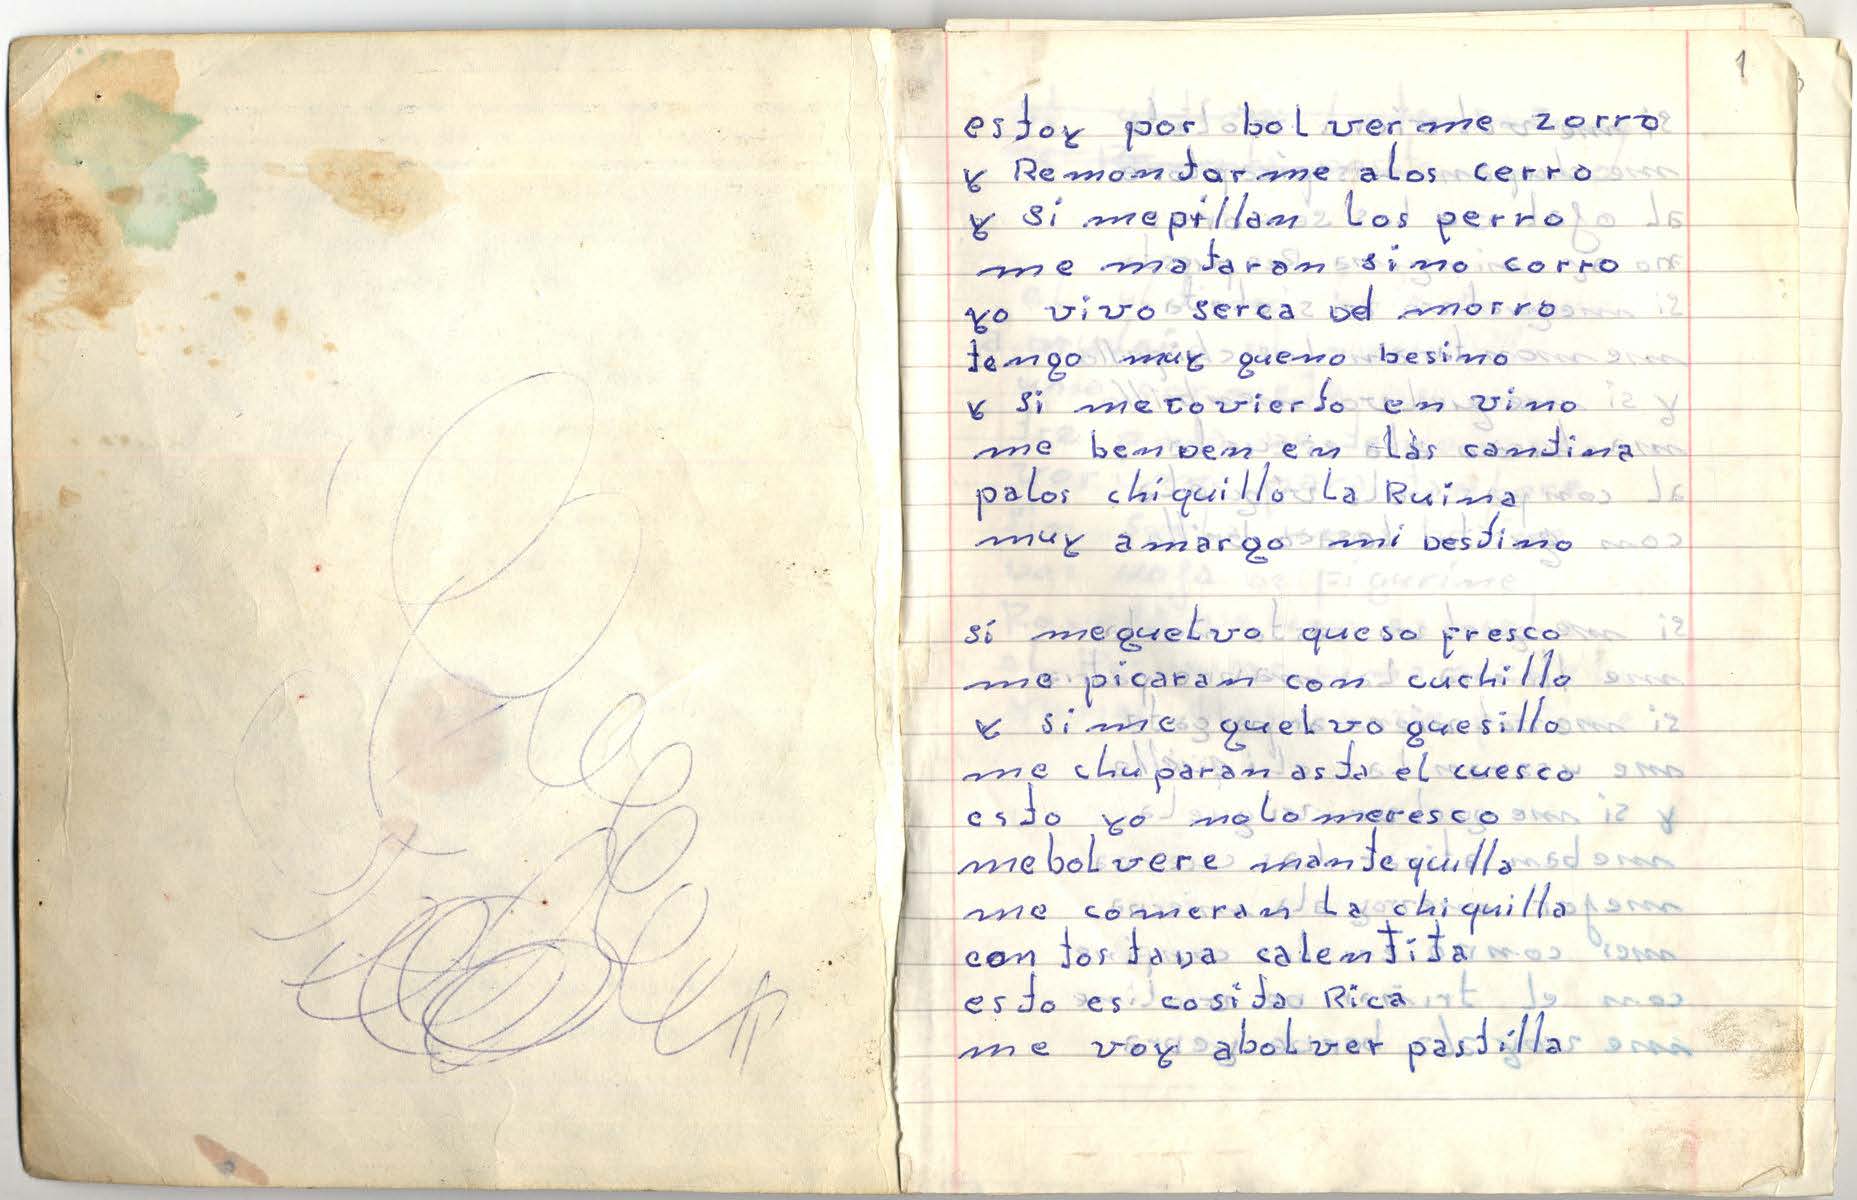 1
estoy por bol ver me zorro
y Remontarme alos cerro
y si mepillan los perro
me mataran sino corro
yo vivo serca del morro
tengo muy gueno besino
y si mecovierto en vino
me benden en las cantina
palos chiquillo la Ruina
muy amargo mi destino
si meguelvo queso fresco
me picaran con cuchillo
y si me guelvo guesillo
me chuparan asta el cuesco
esto yo nolomeresco
mebolvere mantequilla
me comeran la chiquilla
con tostada calentita
esto es cosita Rica
me voy abolver pastilla